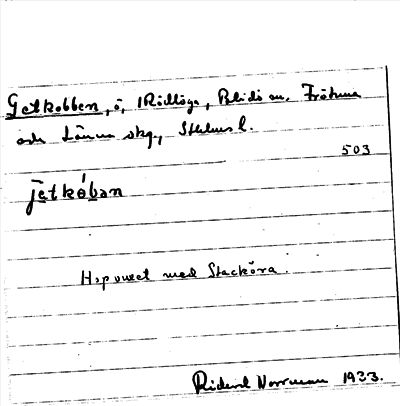 Getkobben, ö, i Rödlöga, Blidö sn. Frötuna
och Länna skg., Sthlms l.
503
jetkóban
Hopvuxet med Stacköra.
Rickard Norrman 1933.